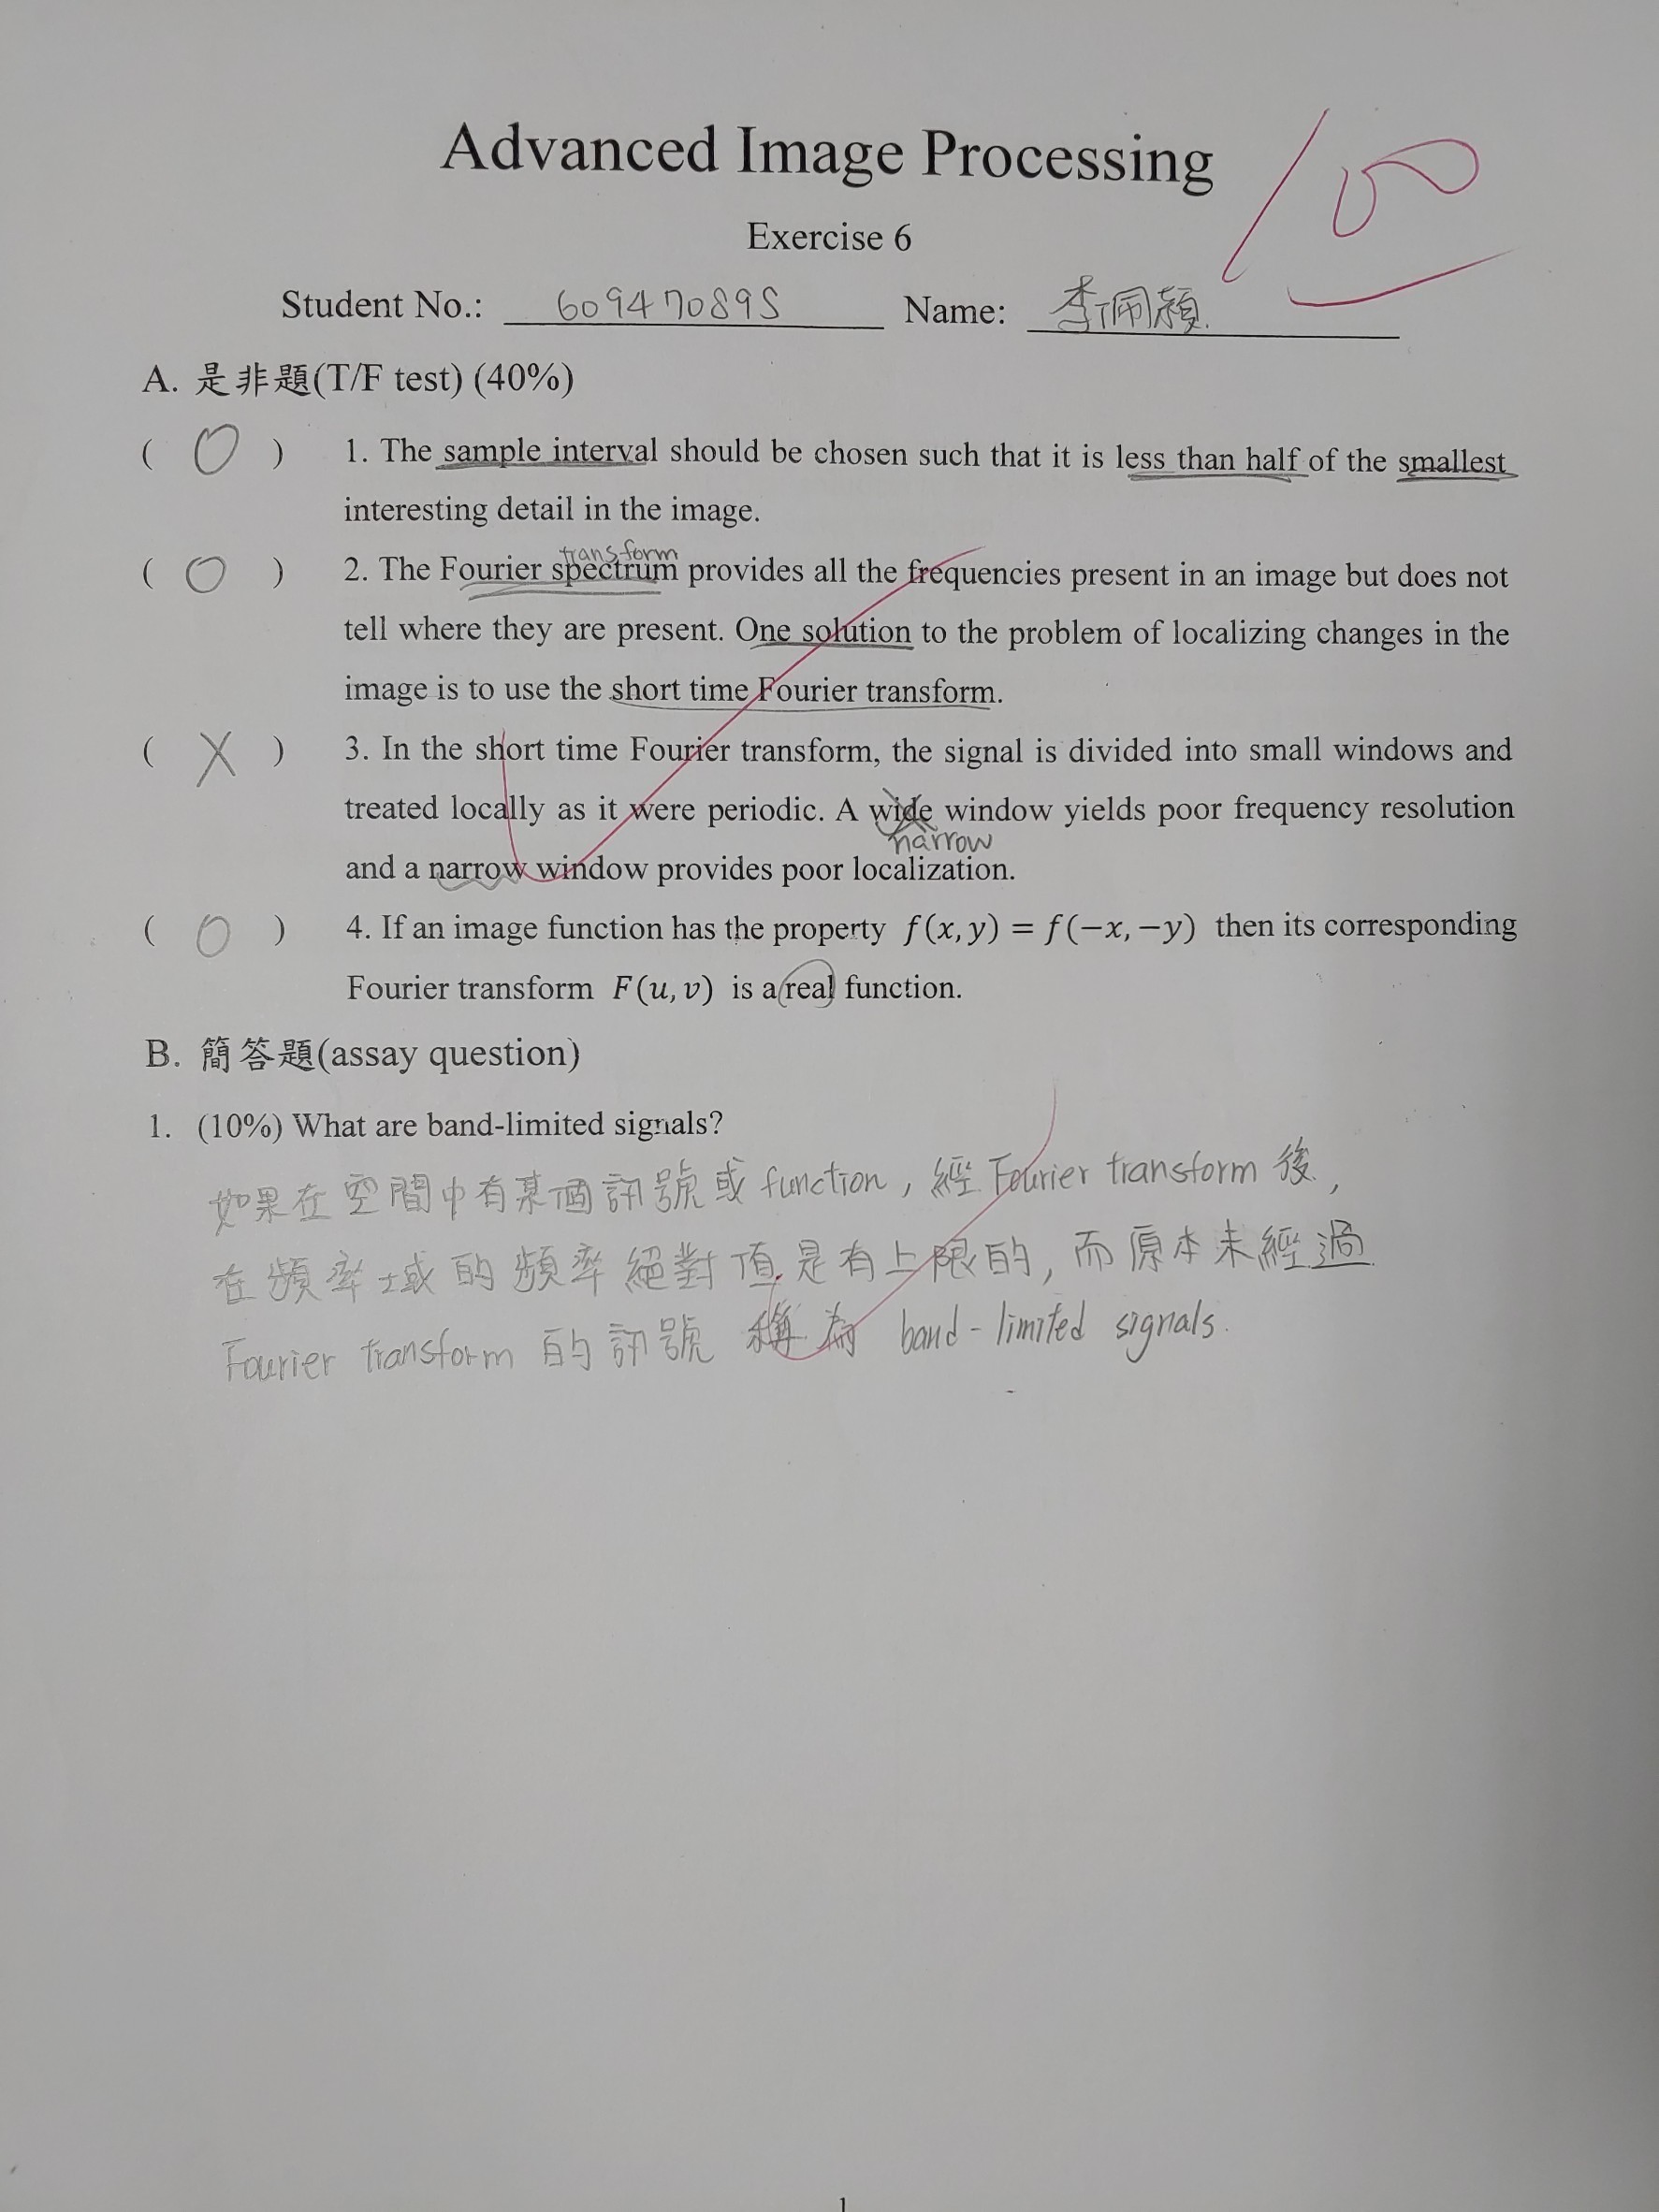 Advanced Image Processing
100
Exercise 6
Student No.: 60947089S Name: 李佩穎
A. 是非題(T/F test) (40%)
( O ) 1. The sample interval should be chosen such that it is less than half of the smallest
interesting detail in the image.
transform
( O ) 2. The Fourier spectrum provides all the frequencies present in an image but does not
tell where they are present. One solution to the problem of localizing changes in the
image is to use the short time Fourier transform.
( X ) 3. In the short time Fourier transform, the signal is divided into small windows and
treated locally as it were periodic. A wide window yields poor frequency resolution
narrow
and a narrow window provides poor localization.
( O ) 4. If an image function has the property f(x,y) = f(−x,−y) then its corresponding
Fourier transform F(u,v) is a real function.
B. 簡答題(assay question)
1. (10%) What are band-limited signals?
如果在空間中有某個訊號或 function, 經 Fourier transform 後,
在頻率域的頻率絕對值是有上限的, 而原本未經過
Fourier transform 的訊號 稱為 band-limited signals.
1